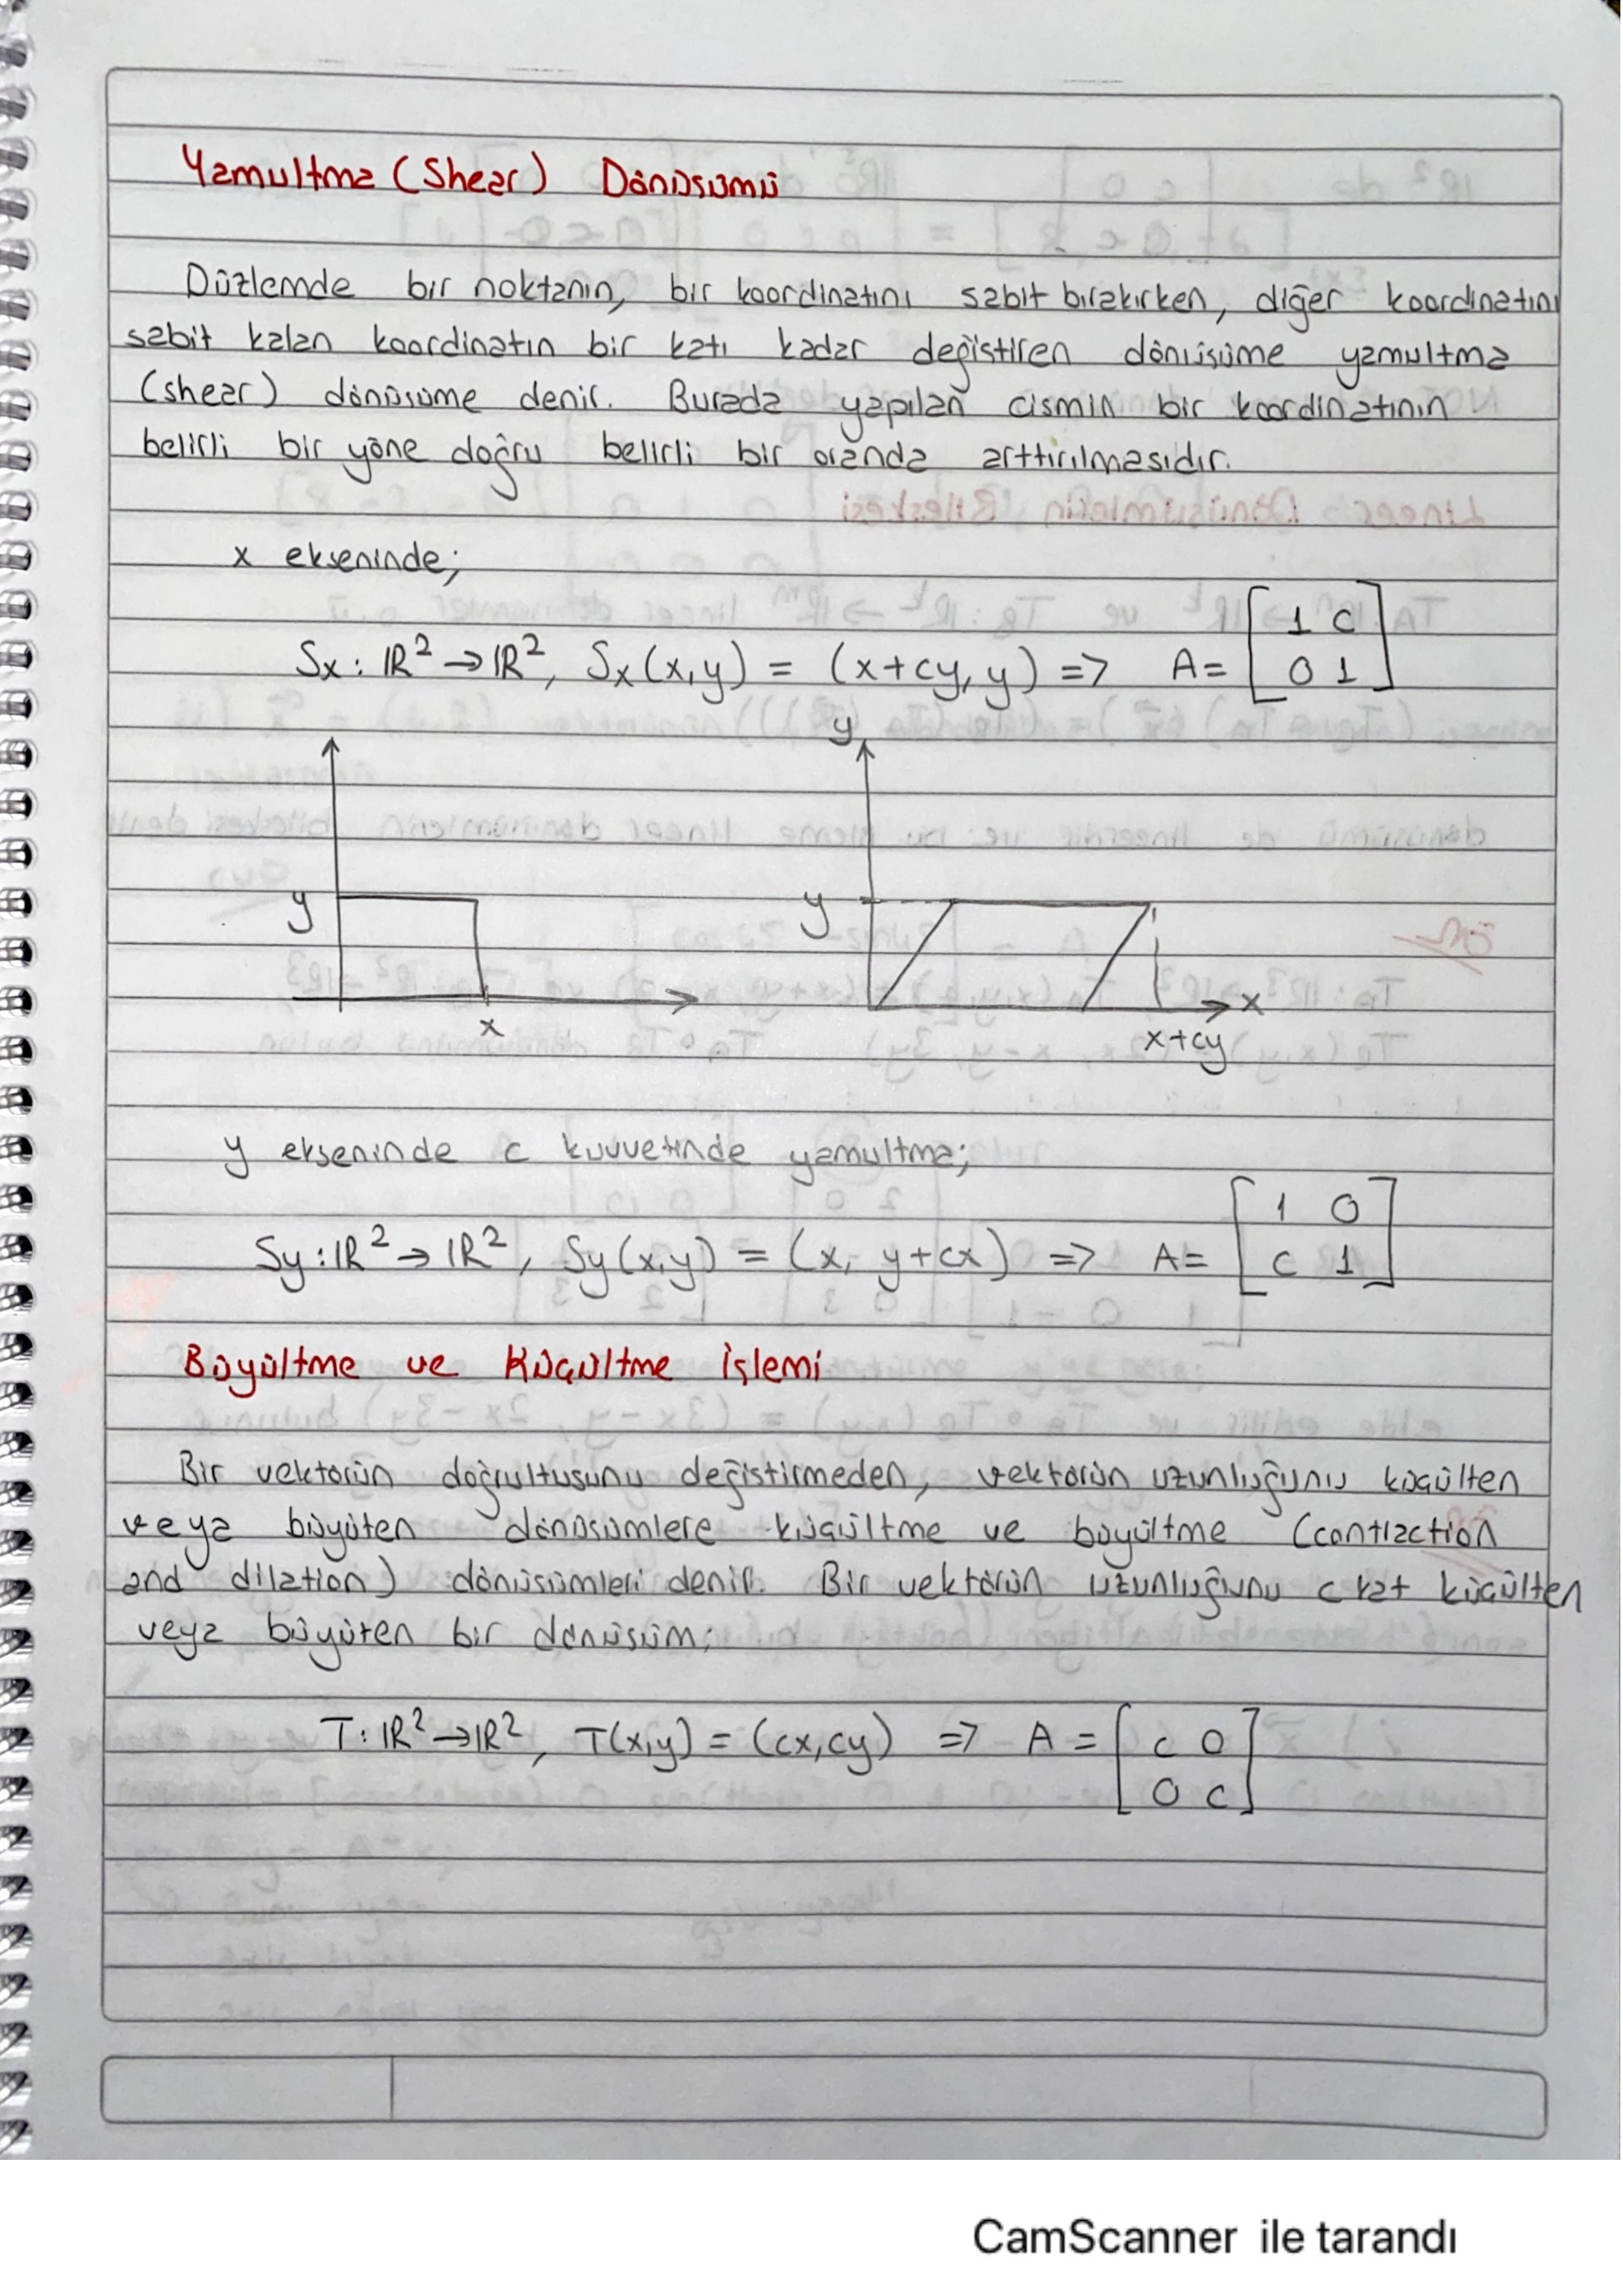 Yamultma (Shear) Dönüşümü
Düzlemde bir noktanın, bir koordinatını sabit bırakırken, diğer koordinatını
sabit kalan koordinatın bir katı kadar değiştiren dönüşüme yamultma
(shear) dönüşüme denir. Burada yapılan cismin bir koordinatının
belirli bir yöne doğru belirli bir oranda arttırılmasıdır.
x ekseninde;
Sx : IR² → IR², Sx(x,y) = (x+cy, y) => A = [1 c
0 1]
y
y
y
x
x
x+cy
y ekseninde c kuvvetinde yamultma;
Sy : IR² → IR², Sy(x,y) = (x, y+cx) => A = [1 0
c 1]
Büyültme ve Küçültme İşlemi
Bir vektörün doğrultusunu değiştirmeden, vektörün uzunluğunu küçülten
veya büyüten dönüşümlere küçültme ve büyültme (contraction
and dilation) dönüşümleri denir. Bir vektörün uzunluğunu c kat küçülten
veya büyüten bir dönüşüm;
T : IR² → IR², T(x,y) = (cx,cy) => A = [c 0
0 c]
CamScanner ile tarandı